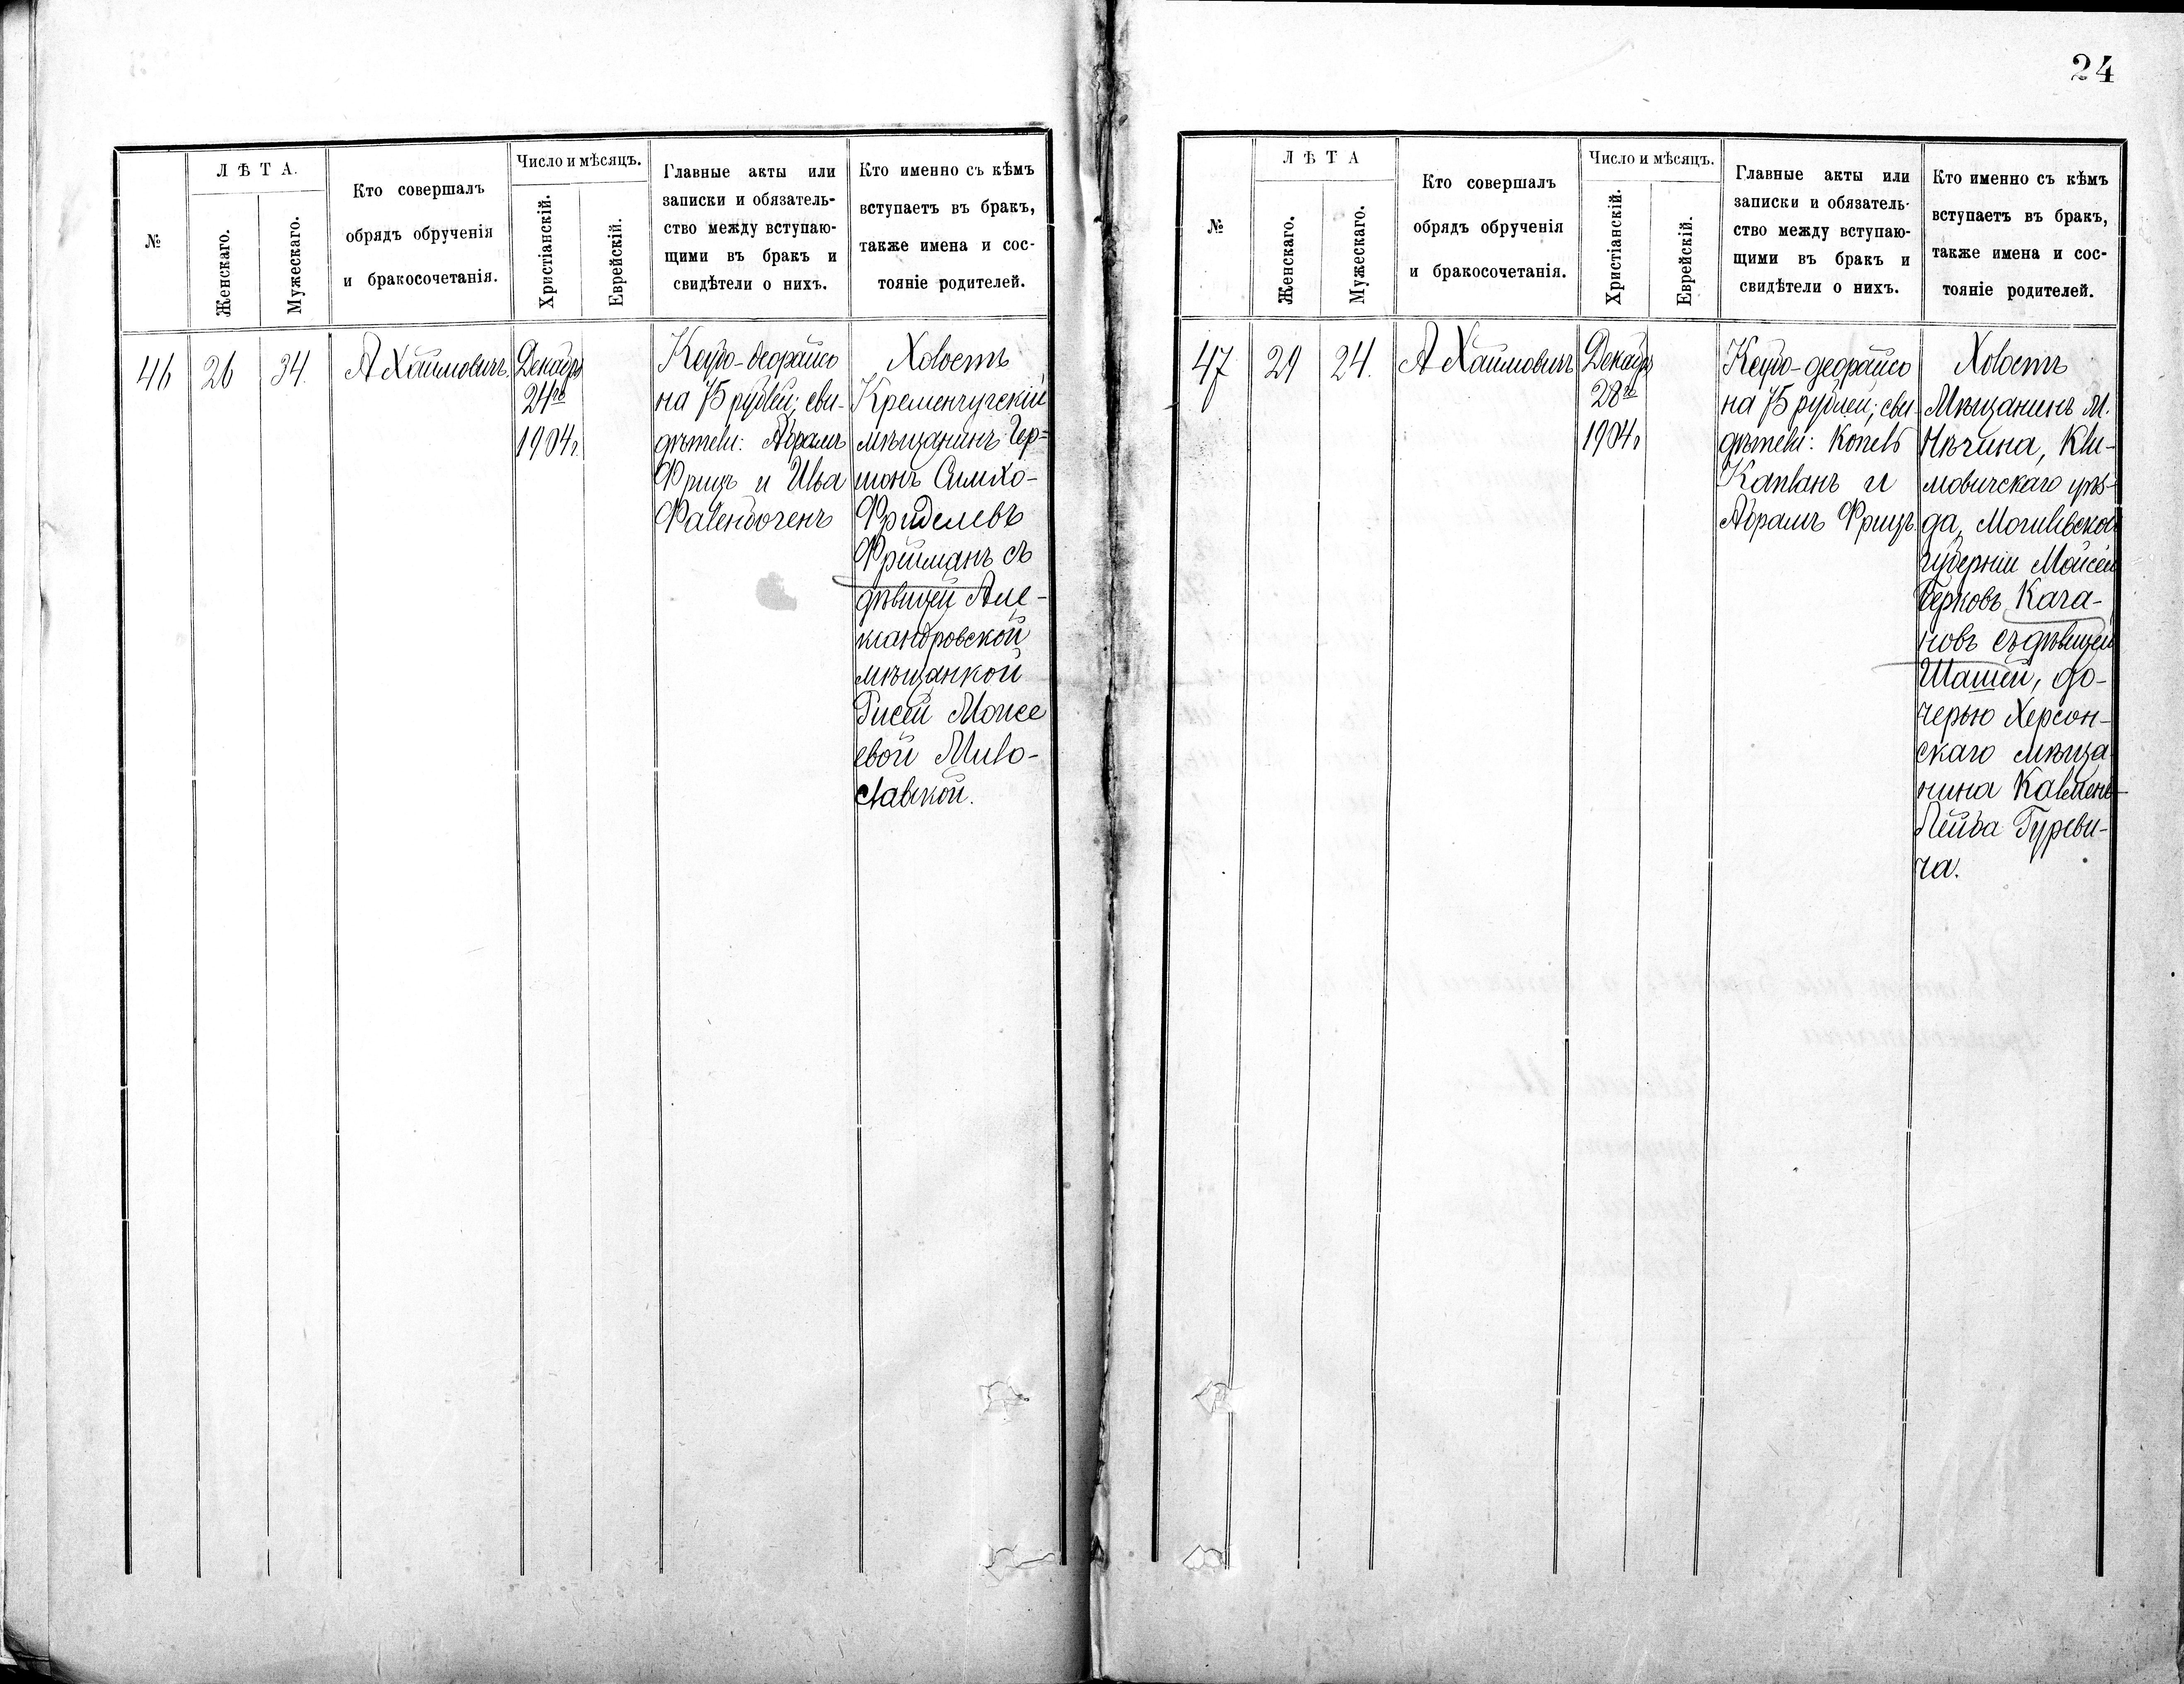 24
№
ЛѢТА.
Женскаго.
Мужескаго.
Кто совершалъ
обрядъ обрученія
и бракосочетанія.
Число и мѣсяцъ.
Христіанскій.
Еврейскій.
Главные акты или
записки и обязатель-
ство между вступаю-
щими въ бракъ и
свидѣтели о нихъ.
Кто именно съ кѣмъ
вступаетъ въ бракъ,
также имена и сос-
тояніе родителей.
46
26
34.
А Хаимовичъ.
Декабр
1904г.
Кесубо-деорайсо
на 75 рублей; сви-
дѣтели: Абрамъ
Фрицъ и Илья
Фалендогенъ
Холостъ
Кременчугскій
мѣщанинъ Гер-
шонъ Симхо-
Фриделевъ
Фрейманъ съ
дѣвицей Але-
ксандровской
мѣщанкой
Гисей Моисе
евой Мило-
славской.
№
ЛѢТА
Женскаго.
Мужескаго.
Кто совершалъ
обрядъ обрученія
и бракосочетанія.
Число и мѣсяцъ.
Христіанскій.
Еврейскій.
Главные акты или
записки и обязатель-
ство между вступаю-
щими въ бракъ и
свидѣтели о нихъ.
Кто именно съ кѣмъ
вступаетъ въ бракъ,
также имена и сос-
тояніе родителей.
47
29
24.
А Хаимовичъ
Декабр
28го
1904г
Кесубо-деорайсо
на 75 рублей; сви
дѣтели: Копель
Капланъ и
Абрамъ Фрицъ.
Холостъ
Мѣщанинъ М.
Нѣчина, Кли-
мовичскаго уѣз-
да, Могилевской
губерніи Моисей
Берковъ Кага-
новъ съ дѣвицей
Шашей, до-
черью Херсон-
скаго мѣща
нина Калмень-
Лейба Гуреви-
ча.